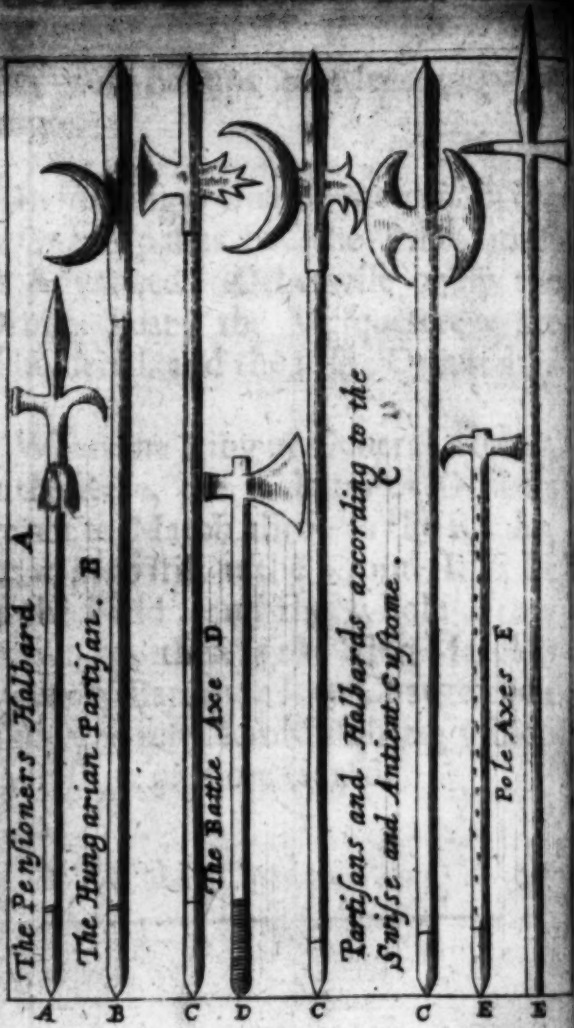 The Penſioners Halbard A
The Hungarian Partiſan. B
The Battle Axe D
Partiſans and Halbards according to the
Swiſse and Antient Cuſtome. C
Pole Axes E
A
B
C
D
C
C
E
E